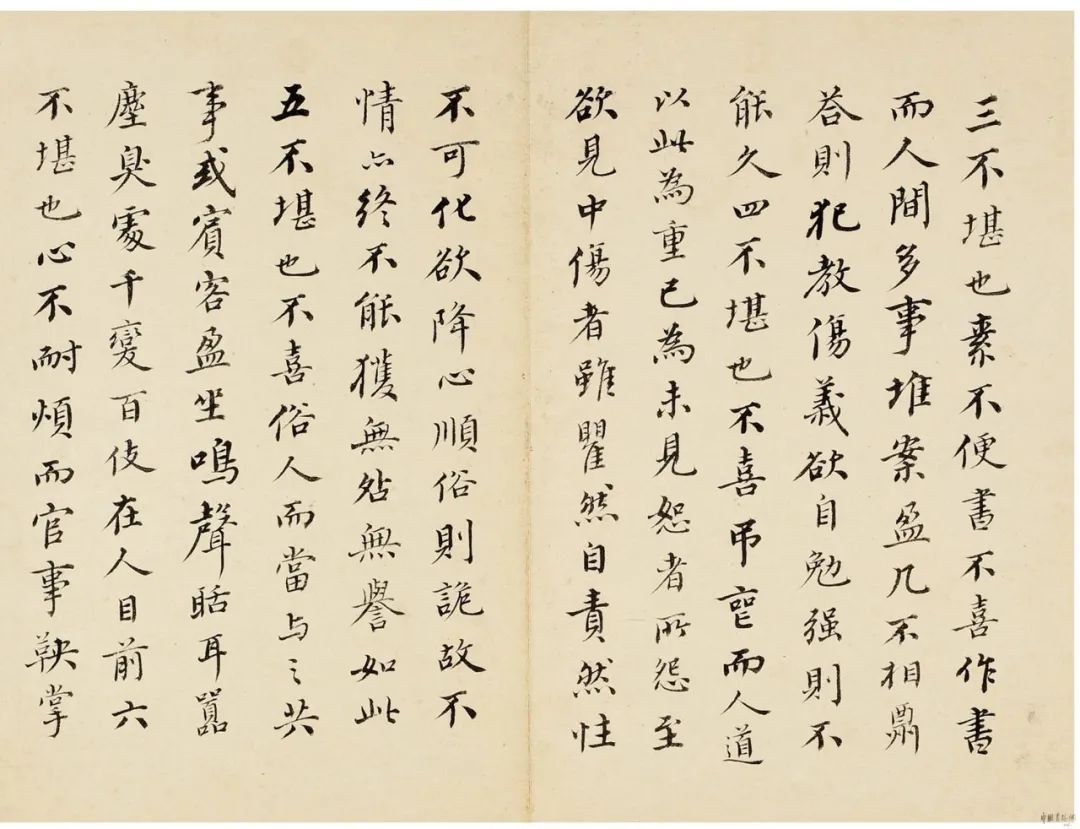 三不堪也素不便書不喜作書
而人間多事堆案盈几不相酬
荅則犯教傷義欲自勉强則不
能久四不堪也不喜吊喪而人道
以此為重已為未見恕者所怨至
欲見中傷者雖瞿然自責然性
不可化欲降心順俗則詭故不
情亦終不能獲無咎無譽如此
五不堪也不喜俗人而當与之共
事或賓客盈坐鳴聲聒耳囂
塵臭處千變百伎在人目前六
不堪也心不耐煩而官事鞅掌